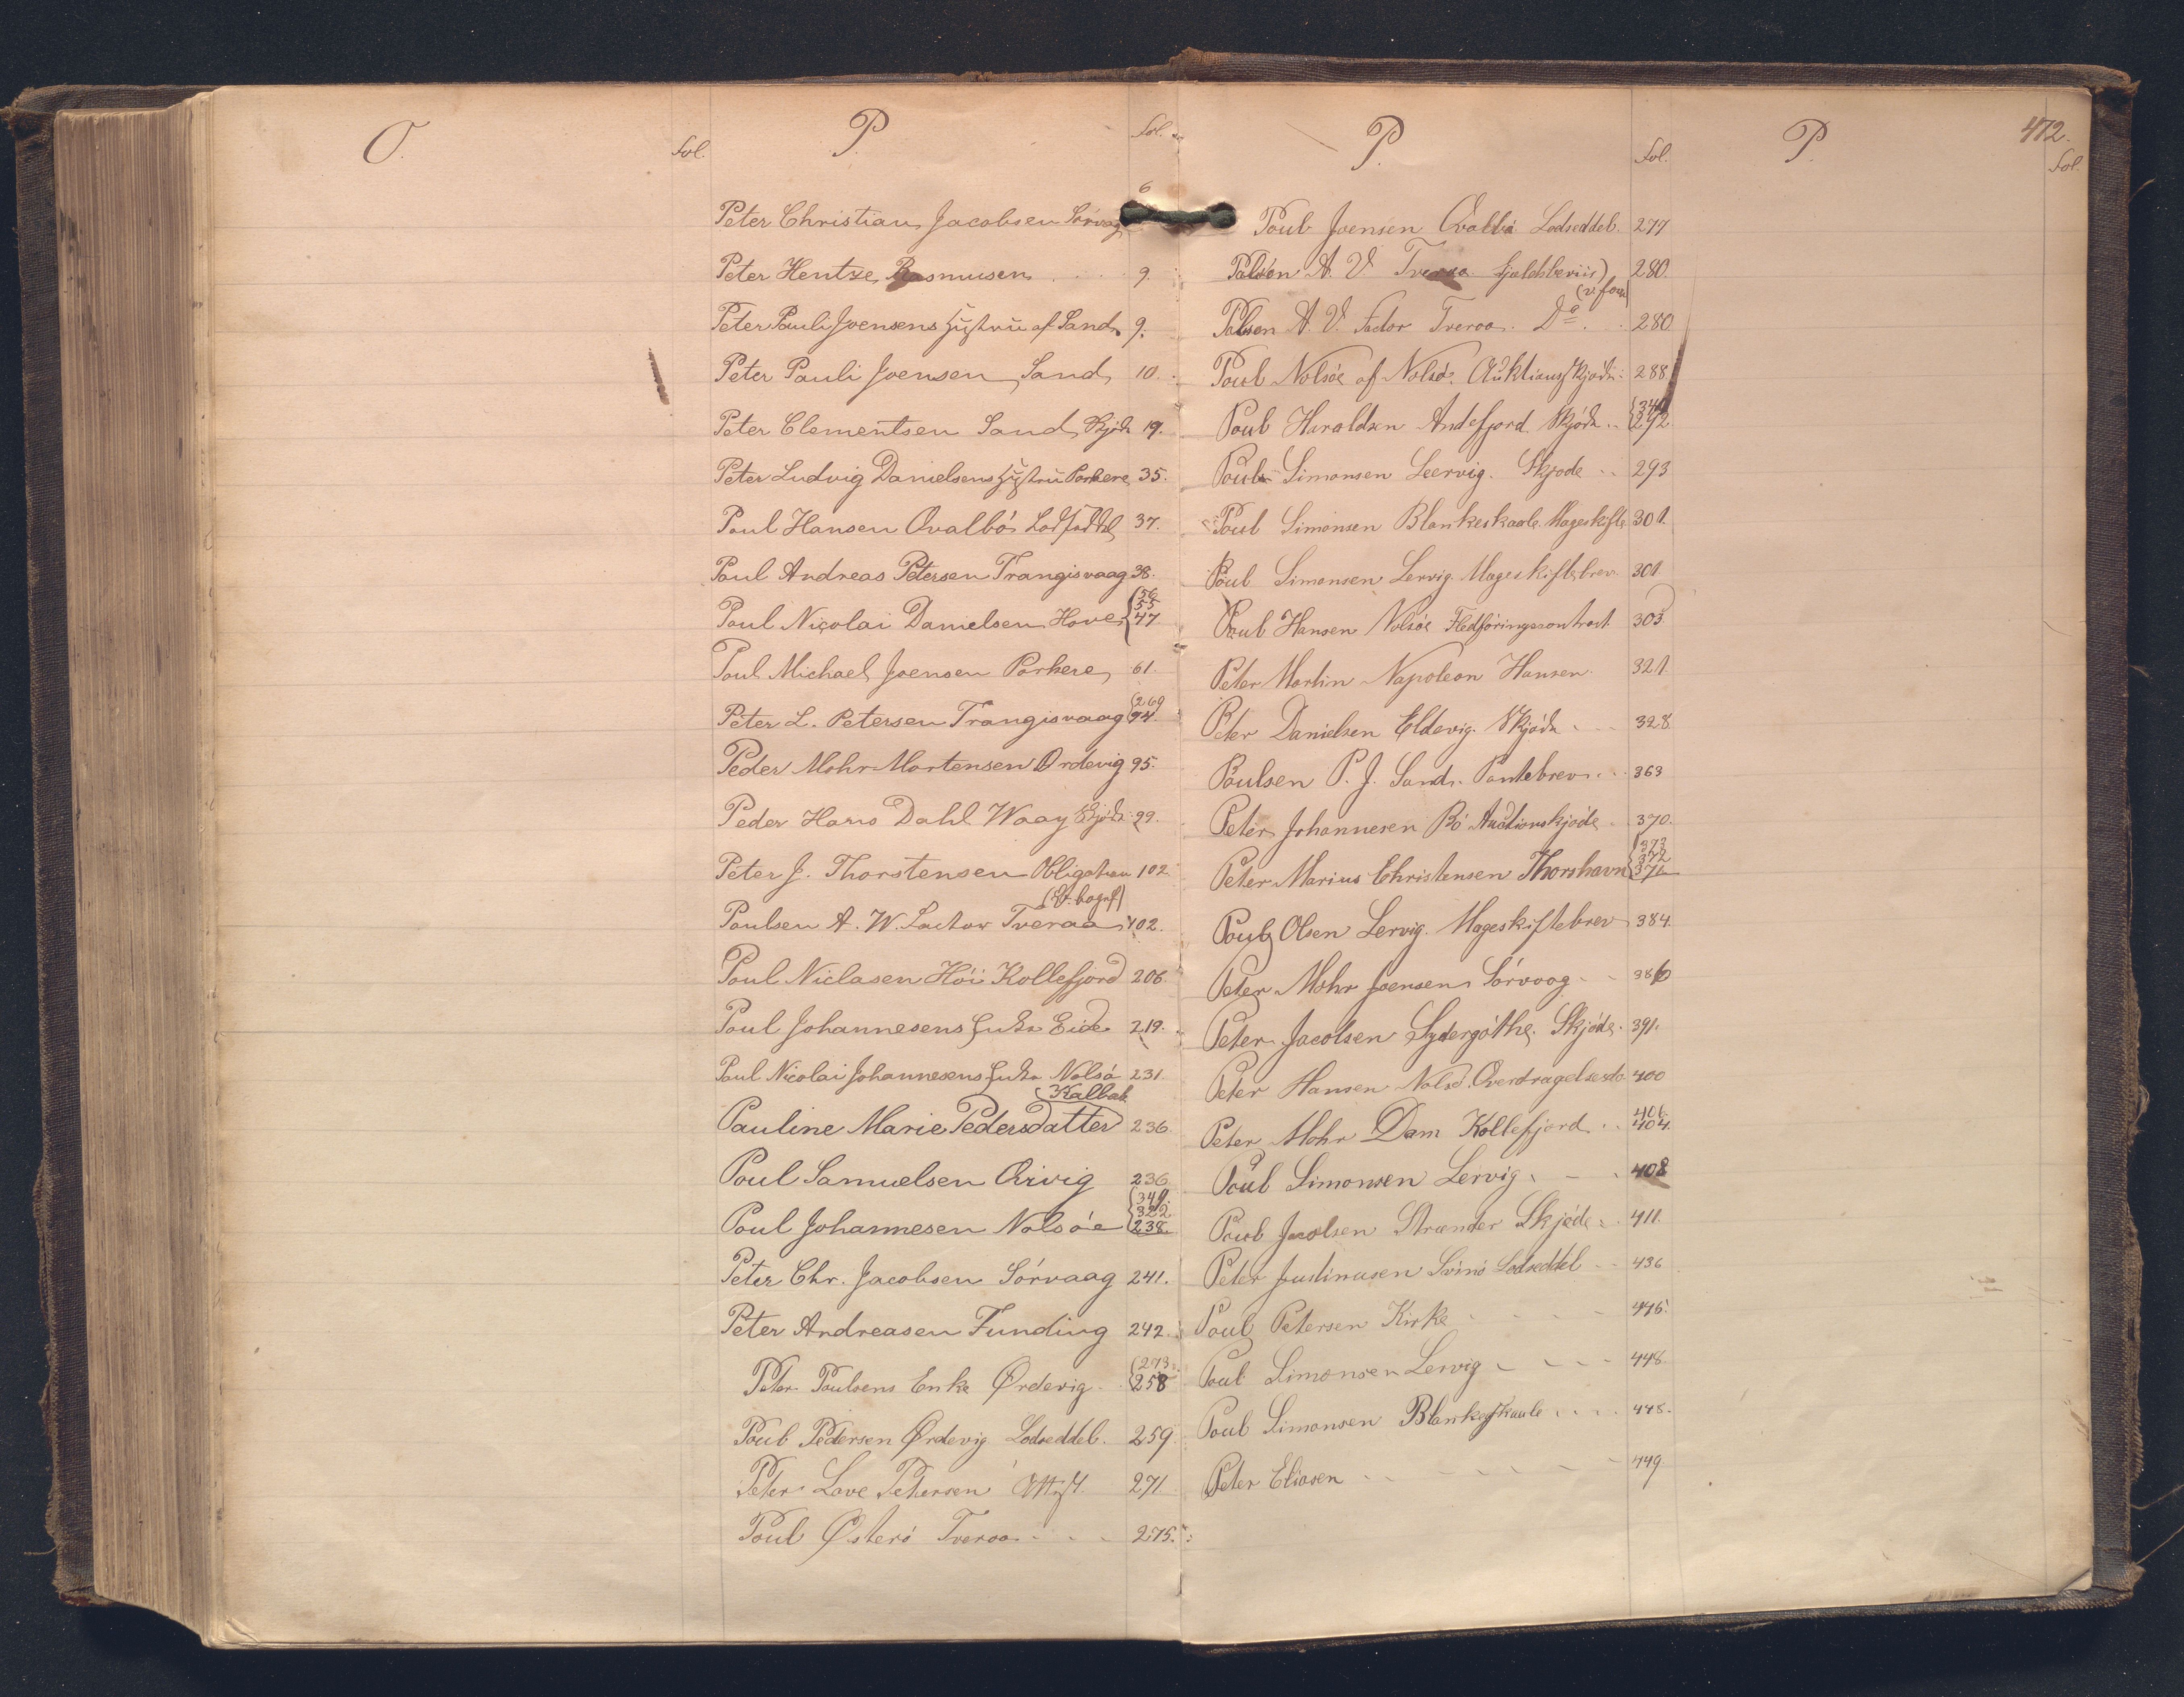 O.
Fol.
P.
Fol.
6
Peter Christian Jacobsen Sörvaag
Peter Hentze Rasmusen 9.
Peter Pauli Joensens Hustru af Sand 9.
Peter Pauli Joensen Sand 10.
Peter Clementsen Sand Skjöde 19.
Peter Ludvig Danielsens Hustru Porkere 35.
Poul Hansen Qvalbö Lodseddel 37.
Poul Andreas Petersen Trangisvaag 38.
56
55
Poul Nicolai Danielsen Hove 47
Poul Michael Joensen Porkere 61.
269
Peter L. Petersen Trangisvaag 94.
Peder Mohr Mortensen Ordevig 95.
Peder Hans Dahl Waag Skjöde 99.
Peter J. Thorstensen Obligation 102
Poulsen A. W. Factor Tveraa 102.
Poul Niclasen Höi Kollefjord 206.
Poul Johannesens Enke Eide 219.
Poul Nicolai Johannesens Enke Nolsö 231.
Kalbak
Pauline Marie Pedersdatter 236.
Poul Samuelsen Qvivig 236.
349.
322
Poul Johannesen Nolsöe 238.
Peter Chr. Jacobsen Sörvaag 241.
Peter Andreasen Funding 242.
273.
Peter Poulsens Enke Ørdevig 258
Poul Pedersen Ørdevig Lodseddel. 259
Peter Lave Petersen 271
Poul Østerö Tveraa 275.
P.
Fol.
Poul Joensen Qvalbö Lodseddel. 277
Polsen A. V. Tveraa Gjeldsbeviis 280.
Polsen A. V. Factor Tveraa. Do. 280
Poul Nolsöe af Nolsö. Auktionsskjöde 288
341
Poul Haraldsen Andefjord Skjöde 292
Poul Simonsen Leervig. Skjode 293
Poul Simonsen Blankeskaale. Mageskifte 301.
Poul Simonsen Lervig. Mageskiftebrev. 301
Poul Hansen Nolsöe Fledföringscontract 303
Peter Martin Napoleon Hansen. 321.
Peter Danielsen Eldevig. Skjöde 328
Poulsen P. J. Sand. Pantebrev 363
Peter Johannesen Bö Auctionskjöde 370.
373
372
Peter Marius Christensen Thorshavn 371
Poul Olsen Lervig. Mageskiftebrev 384.
Peter Mohr Joensen Sörvaag 386
Peter Jacobsen Sydergöthe. Skjöde. 391.
Peter Hansen Nolsö. Overdragelsesdo 400
406.
Peter Mohr Dam Kollefjord 404.
Poul Simonsen Lervig 408
Poul Jacobsen Strænder Skjöde 411.
Peter Justinusen Svinö Lodseddel 436
Poul Petersen Kirke 446.
Poul Simonsen Lervig 448.
Poul Simonsen Blankeskaale 448.
Peter Eliasen 449
P.
472.
Fol.